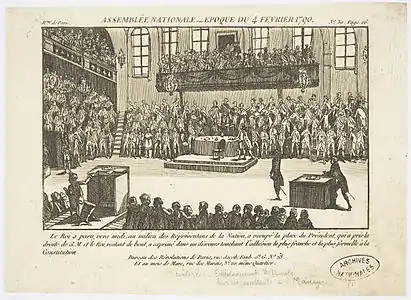 Rᵒⁿ de Paris.
ASSEMBLÉE NATIONALE _ EPOQUE DU 4 FEVRIER 1790.
Nº 30. Page 26
Le Roi a paru, vers midi, au milieu des Représentans de la Nation, a occupé la place du Président, qui a pris la
droite de S.M. et le Roi restant de bout, a exprimé dans un discours touchant l'adhésion la plus franche et la plus formelle à la
Constitution.
Bureau des Révolutions de Paris, rue Jacob, Faub. Sᵗ G. Nº 28.
Et au mois de Mars, rue des Marais, Nº 20 même Quartier.
du Manège
ARCHIVES
NATIONALES